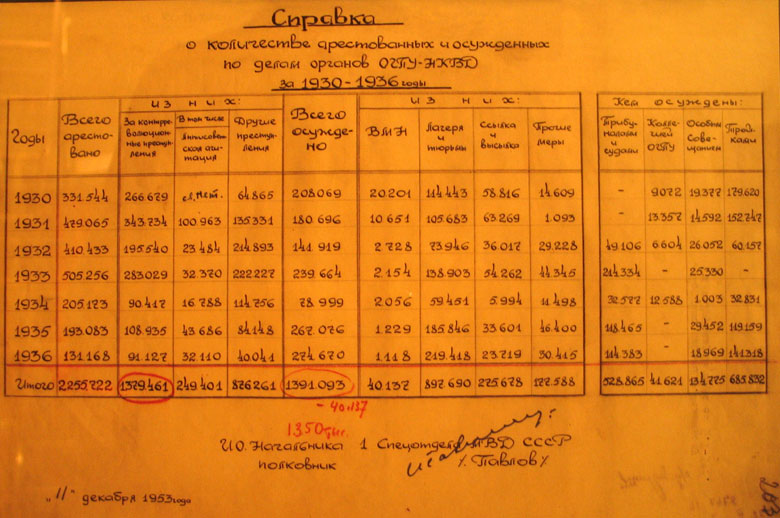 Справка
о количестве арестованных и осужденных
по делам органов ОГПУ-НКВД
за 1930-1936 годы
Годы Всего арестовано из них: Всего осуждено из них: Кем осуждены:
За контрреволюционные преступления В том числе Антисоветская агитация Другие преступления ВМН Лагеря и тюрьмы Ссылка и высылка Прочие меры Трибуналами и судами Коллегией ОГПУ Особым Совещанием Тройками
1930 331.544 266.679 св.нет. 64.865 208.069 20.201 114.443 58.816 14.609 - 9.072 19.377 179.620
1931 479.065 343.734 100.963 135.331 180.696 10.651 105.683 63.269 1.093 - 13.357 14.592 152.747
1932 410.433 195.540 23.484 214.893 141.919 2.728 73.946 36.017 29.228 49.106 6.604 26.052 60.157
1933 505.256 283.029 32.370 222.227 239.664 2.154 138.903 54.262 44.345 214.334 - 25.330 -
1934 205.173 90.417 16.788 114.756 78.999 2.056 59.451 5.994 11.498 32.577 12.588 1.003 32.831
1935 193.083 108.935 43.686 84.148 267.076 1.229 185.846 33.601 46.400 118.465 - 29.452 119.159
1936 131.168 91.127 32.110 40.041 274.670 1.118 219.418 23.719 30.415 114.383 - 18.969 141.318
Итого 2255.722 1379.461 249.401 876.261 1391.093 40.137 897.690 275.678 177.588 528.865 41.621 134.775 685.832
- 40.137
1350 тыс.
ИО. Начальника 1 Спецотдела МВД СССР
полковник /Павлов/
"11" декабря 1953 года